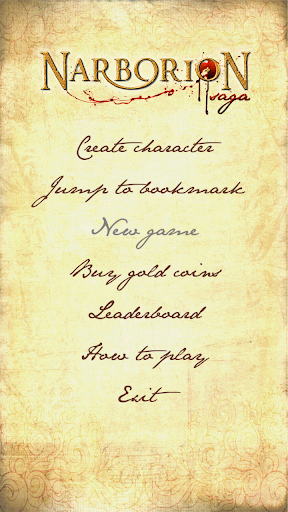 NARBORION
saga
Create character
Jump to bookmark
New game
Buy gold coins
Leaderboard
How to play
Exit